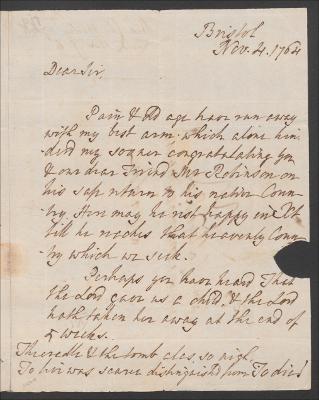 Bristol
Nov. 4. 1764
Dear Sir,
Pain & Old age have run away
with my best arm which alone hin-
dred my sooner congratulating you
& our dear Friend Mr Robinson on
his safe return to his native Coun-
-try. Here may he rest happy in
till he reaches that heavenly Coun-
try which we seek.
Perhaps you have heard That
the Lord gave us a child & the Lord
hath taken her away at the end of
5 weeks.
The credle & the tomb alas, so nigh
To live was scarce distinguish'd from To die!